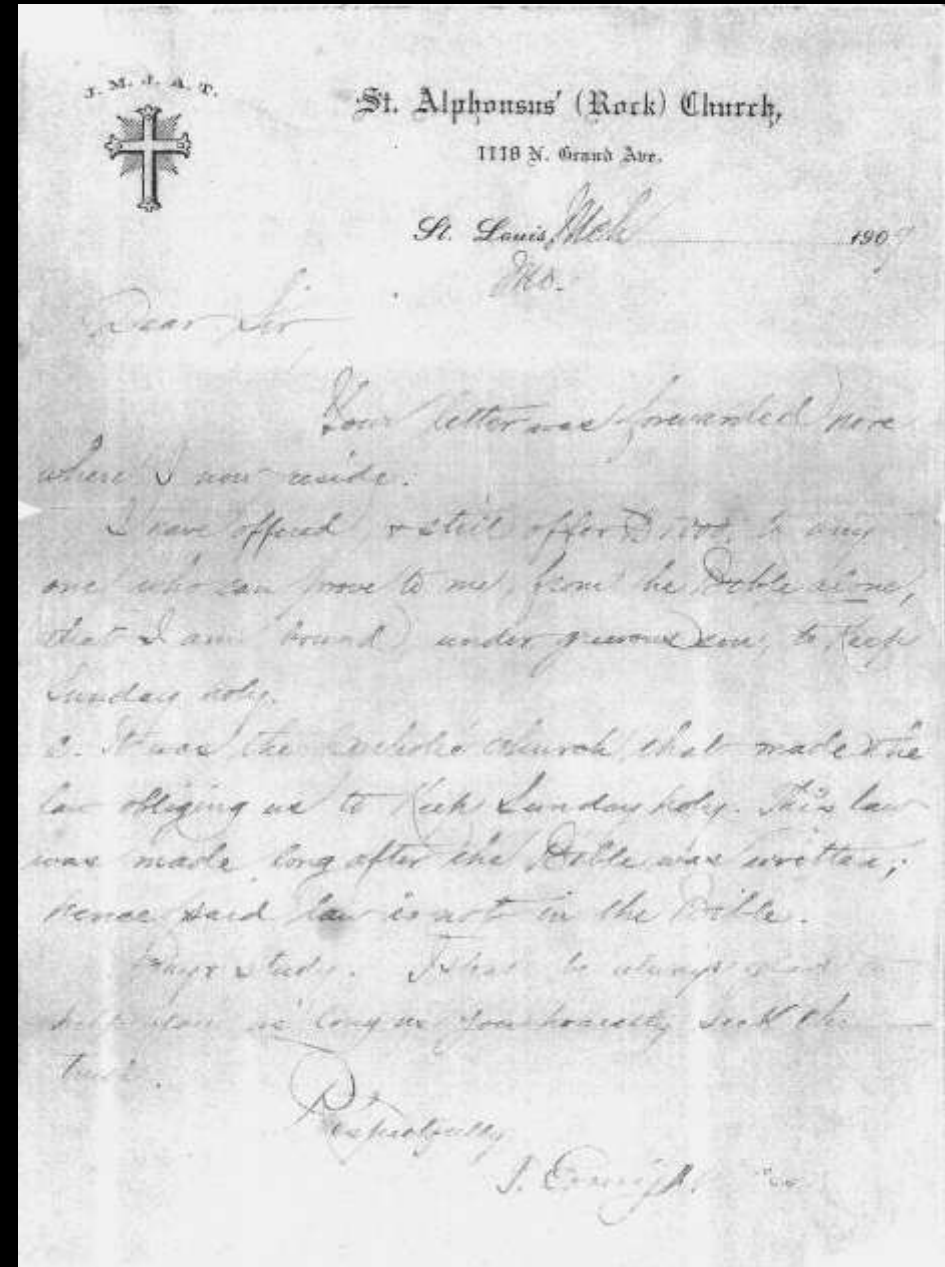 J. M. J. A. T.
St. Alphonsus' (Rock) Church,
1118 N. Grand Ave.
St. Louis, Mch 1909
Mo.
Dear Sir
Your letter was forwarded here
where I now reside.
I have offered & still offer $1000, to any
one who can prove to me, from the Bible alone,
that I am bound, under grievous sin, to keep
Sunday holy.
2. It was the Catholic Church that made the
law obliging us to keep Sunday holy. This law
was made long after the Bible was written;
hence said law is not in the Bible.
Pray & study. I shall be always glad to
help you as long as you honestly seek the
truth.
Respectfully